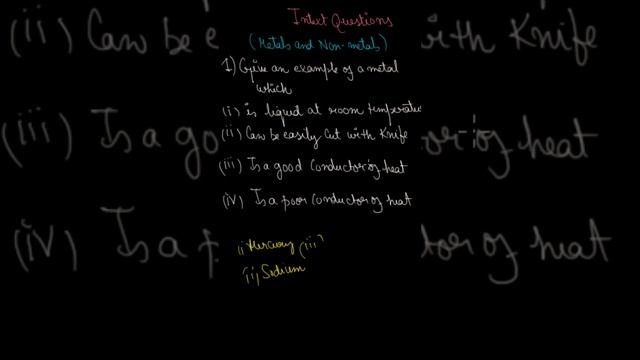 Intext Questions
(Metals and Non-metals)
1) Give an example of a metal
which
(i) is liquid at room temperatu
(ii) Can be easily cut with Knife
(iii) Is a good conductor of heat
(iv) Is a poor conductor of heat
i) Mercury (iii)
ii) Sodium
(ii) Can be e
with Knife
(iii) Is a go
or of heat
(iv) Is a p
tor of heat